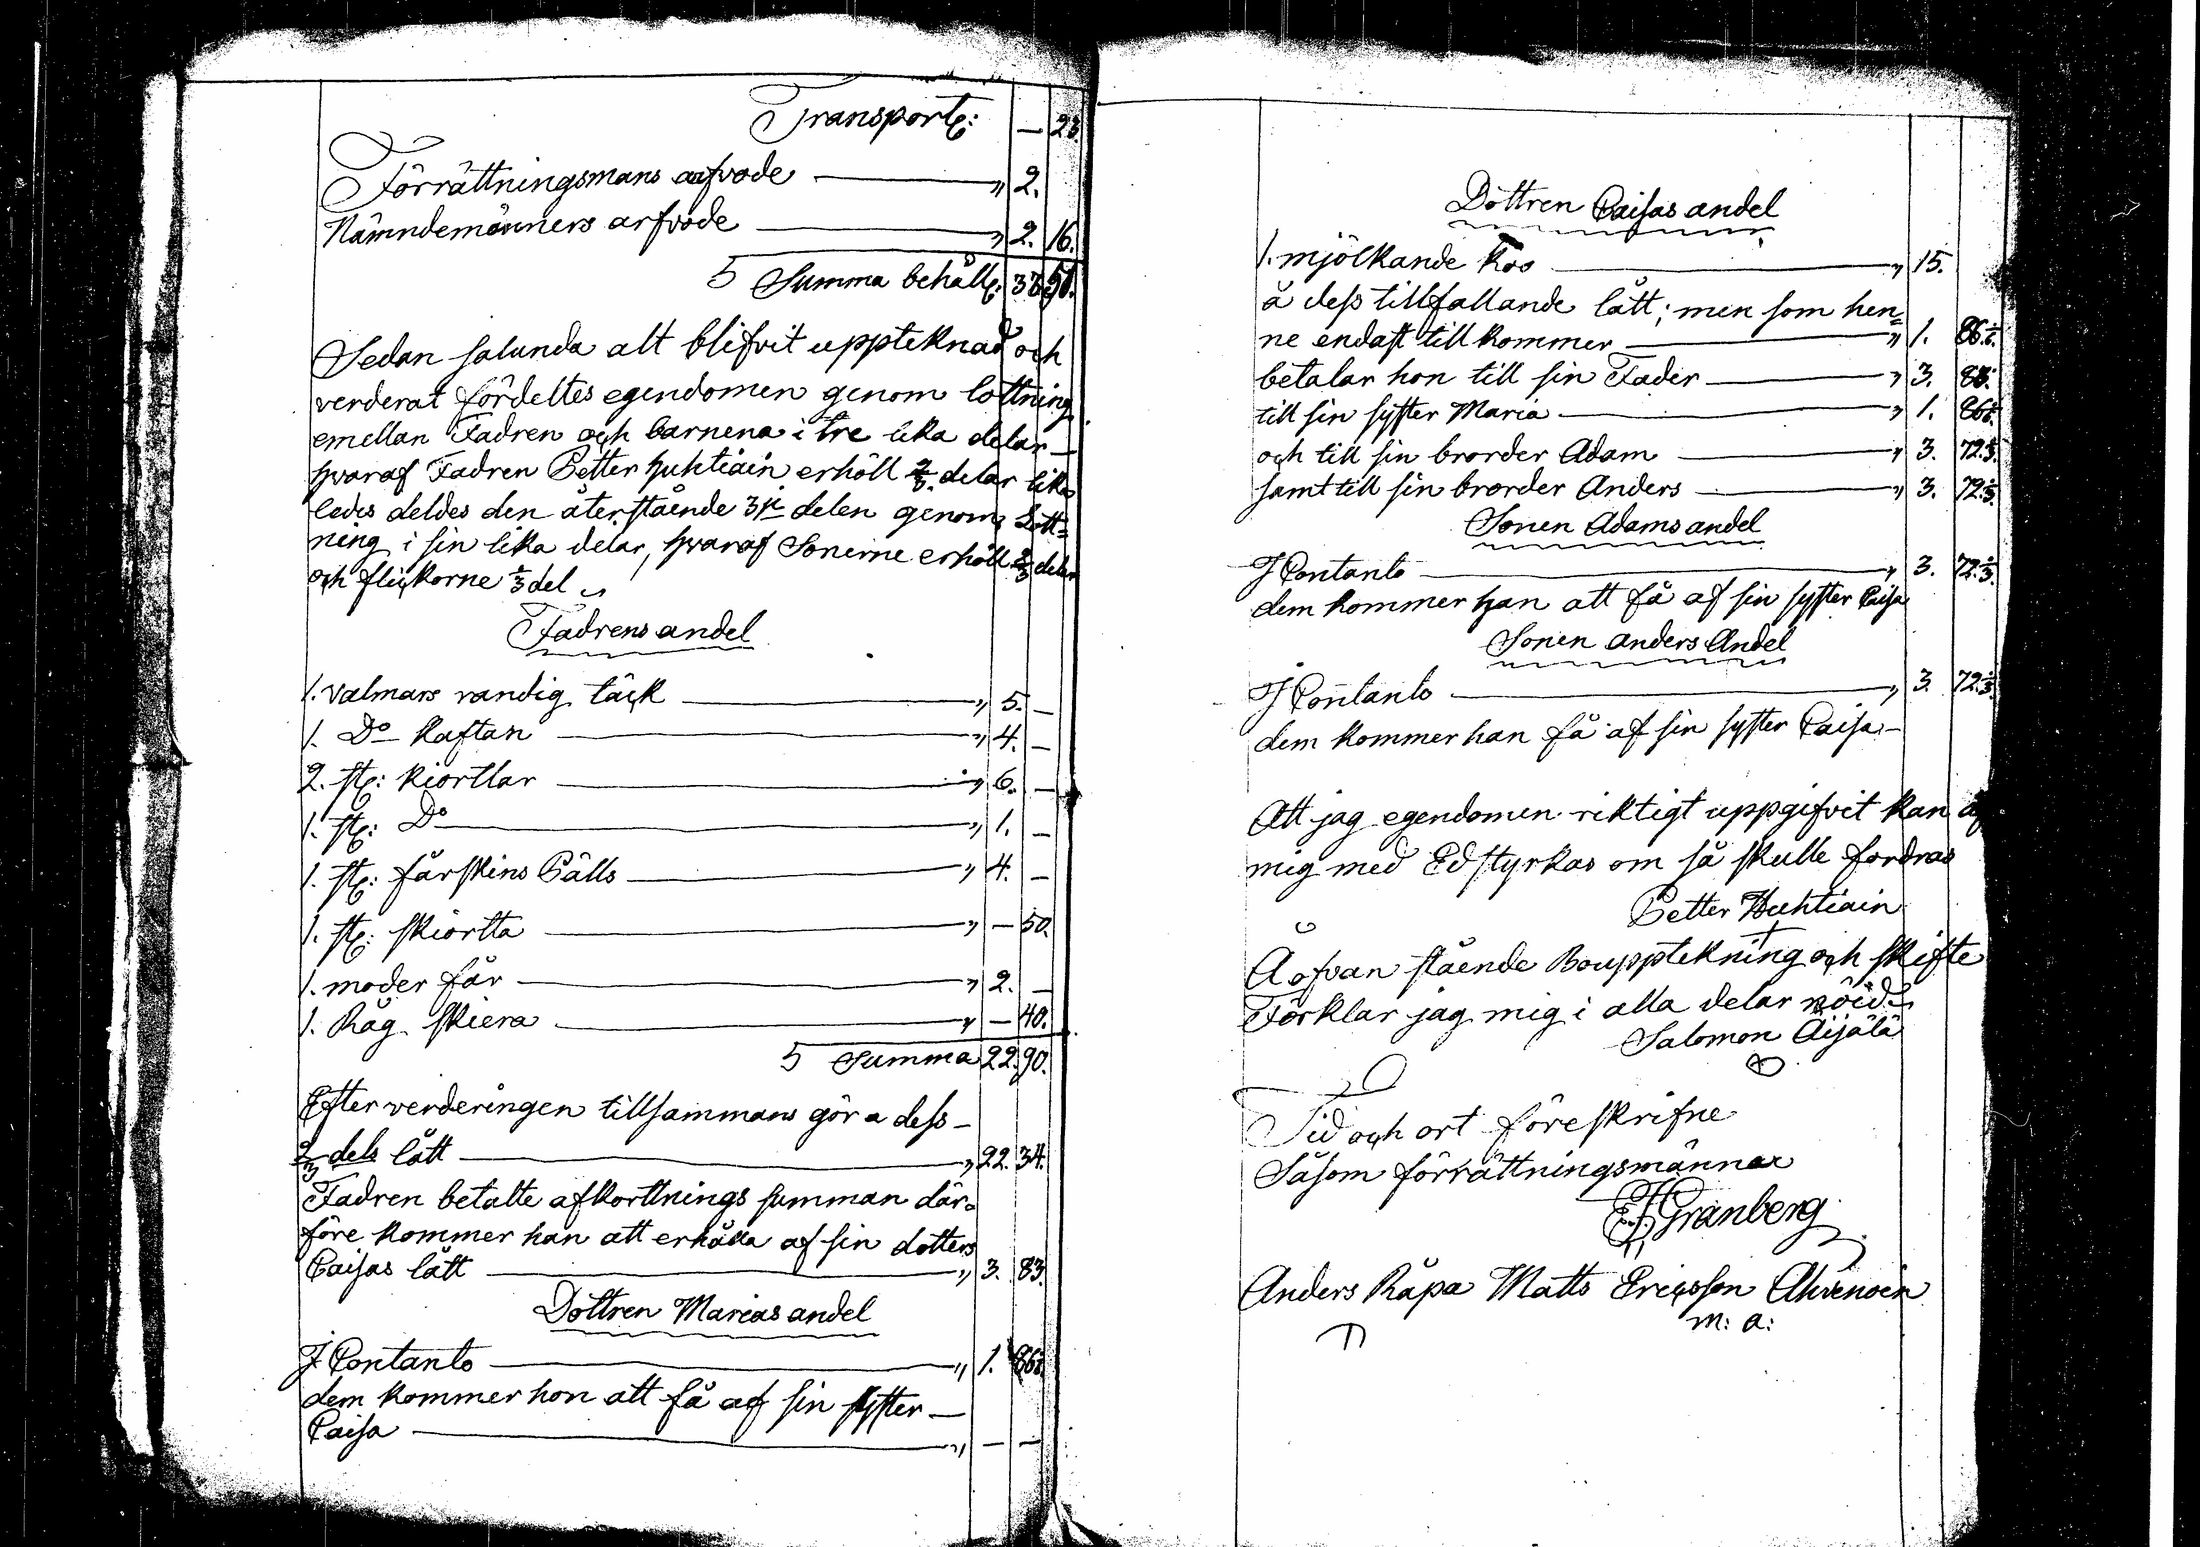 Transport: — 23.
Förrättningsmans arfvode — „ 2.
Nämndemänners arfvode — „ 2. 16.
S Summa behåll: 33. 51.
Sedan salunda alt blifvit uppteknad och
verderat fördeltes egendomen genom lottning
emellan Fadren och barnena i tre lika delar —
hvaraf Fadren Petter Huhtiain erhöll 2/3. delar lika
ledes deldes den återstående 3je delen genom Lott=
ning i sin lika delar, hvaraf Sonerne erhöll 2/3 delar
och flickorne 1/3 del
Fadrens andel
1. valmars randig täck — „ 5. —
1. Do kaftan — „ 4. —
2. st: kiortlar — „ 6. —
1. st: Do — „ 1. —
1. st: fårskins Pälls — „ 4. —
1. st: skiorta — „ — 50.
1. moder får — „ 2. —
1. Råg skiera — „ — 40.
S Summa 22. 90.
Efter verderingen tillsammans göra dess —
2/3 dels lått — „ 22. 34.
Fadren betalte afkorttnings summan där=
före kommer han att erhålla af sin dotters
Caisas lått — „ 3. 83.
Dottren Marias andel
J Contanto — „ 1. 86
dem kommer hon att få af sin syster —
Caisa — „ — —
Dottren Caisas andel
1. mjölkande Koo — „ 15.
å dess tillfallande lått; men som hen=
ne endast tillkommer — „ 1. 86
betalar hon till sin Fader — „ 3. 83.
till sin syster Maria — „ 1. 86
och till sin brorder Adam — „ 3. 72.
samt till sin brorder Anders — „ 3. 72.
Sonen Adams andel
J Contanto — „ 3. 72.
dem kommer han att få af sin syster Caisa
Sonen anders Andel
J Contanto — „ 3. 72.
dem kommer han få af sin syster Caisa —
Att jag egendomen riktigt uppgifvit kan af
mig med Ed styrkas om så skulle fordras
Petter Huhtiain
Å ofvan stående Boupptekning och skifte
Förklar jag mig i alla delar nöid
Salomon Äijälä
Tid och ort föreskrifne
Såsom förrättningsmännar
EJGranberg
Anders Råpa Matts Ericsson Ahvenoin
m: a: